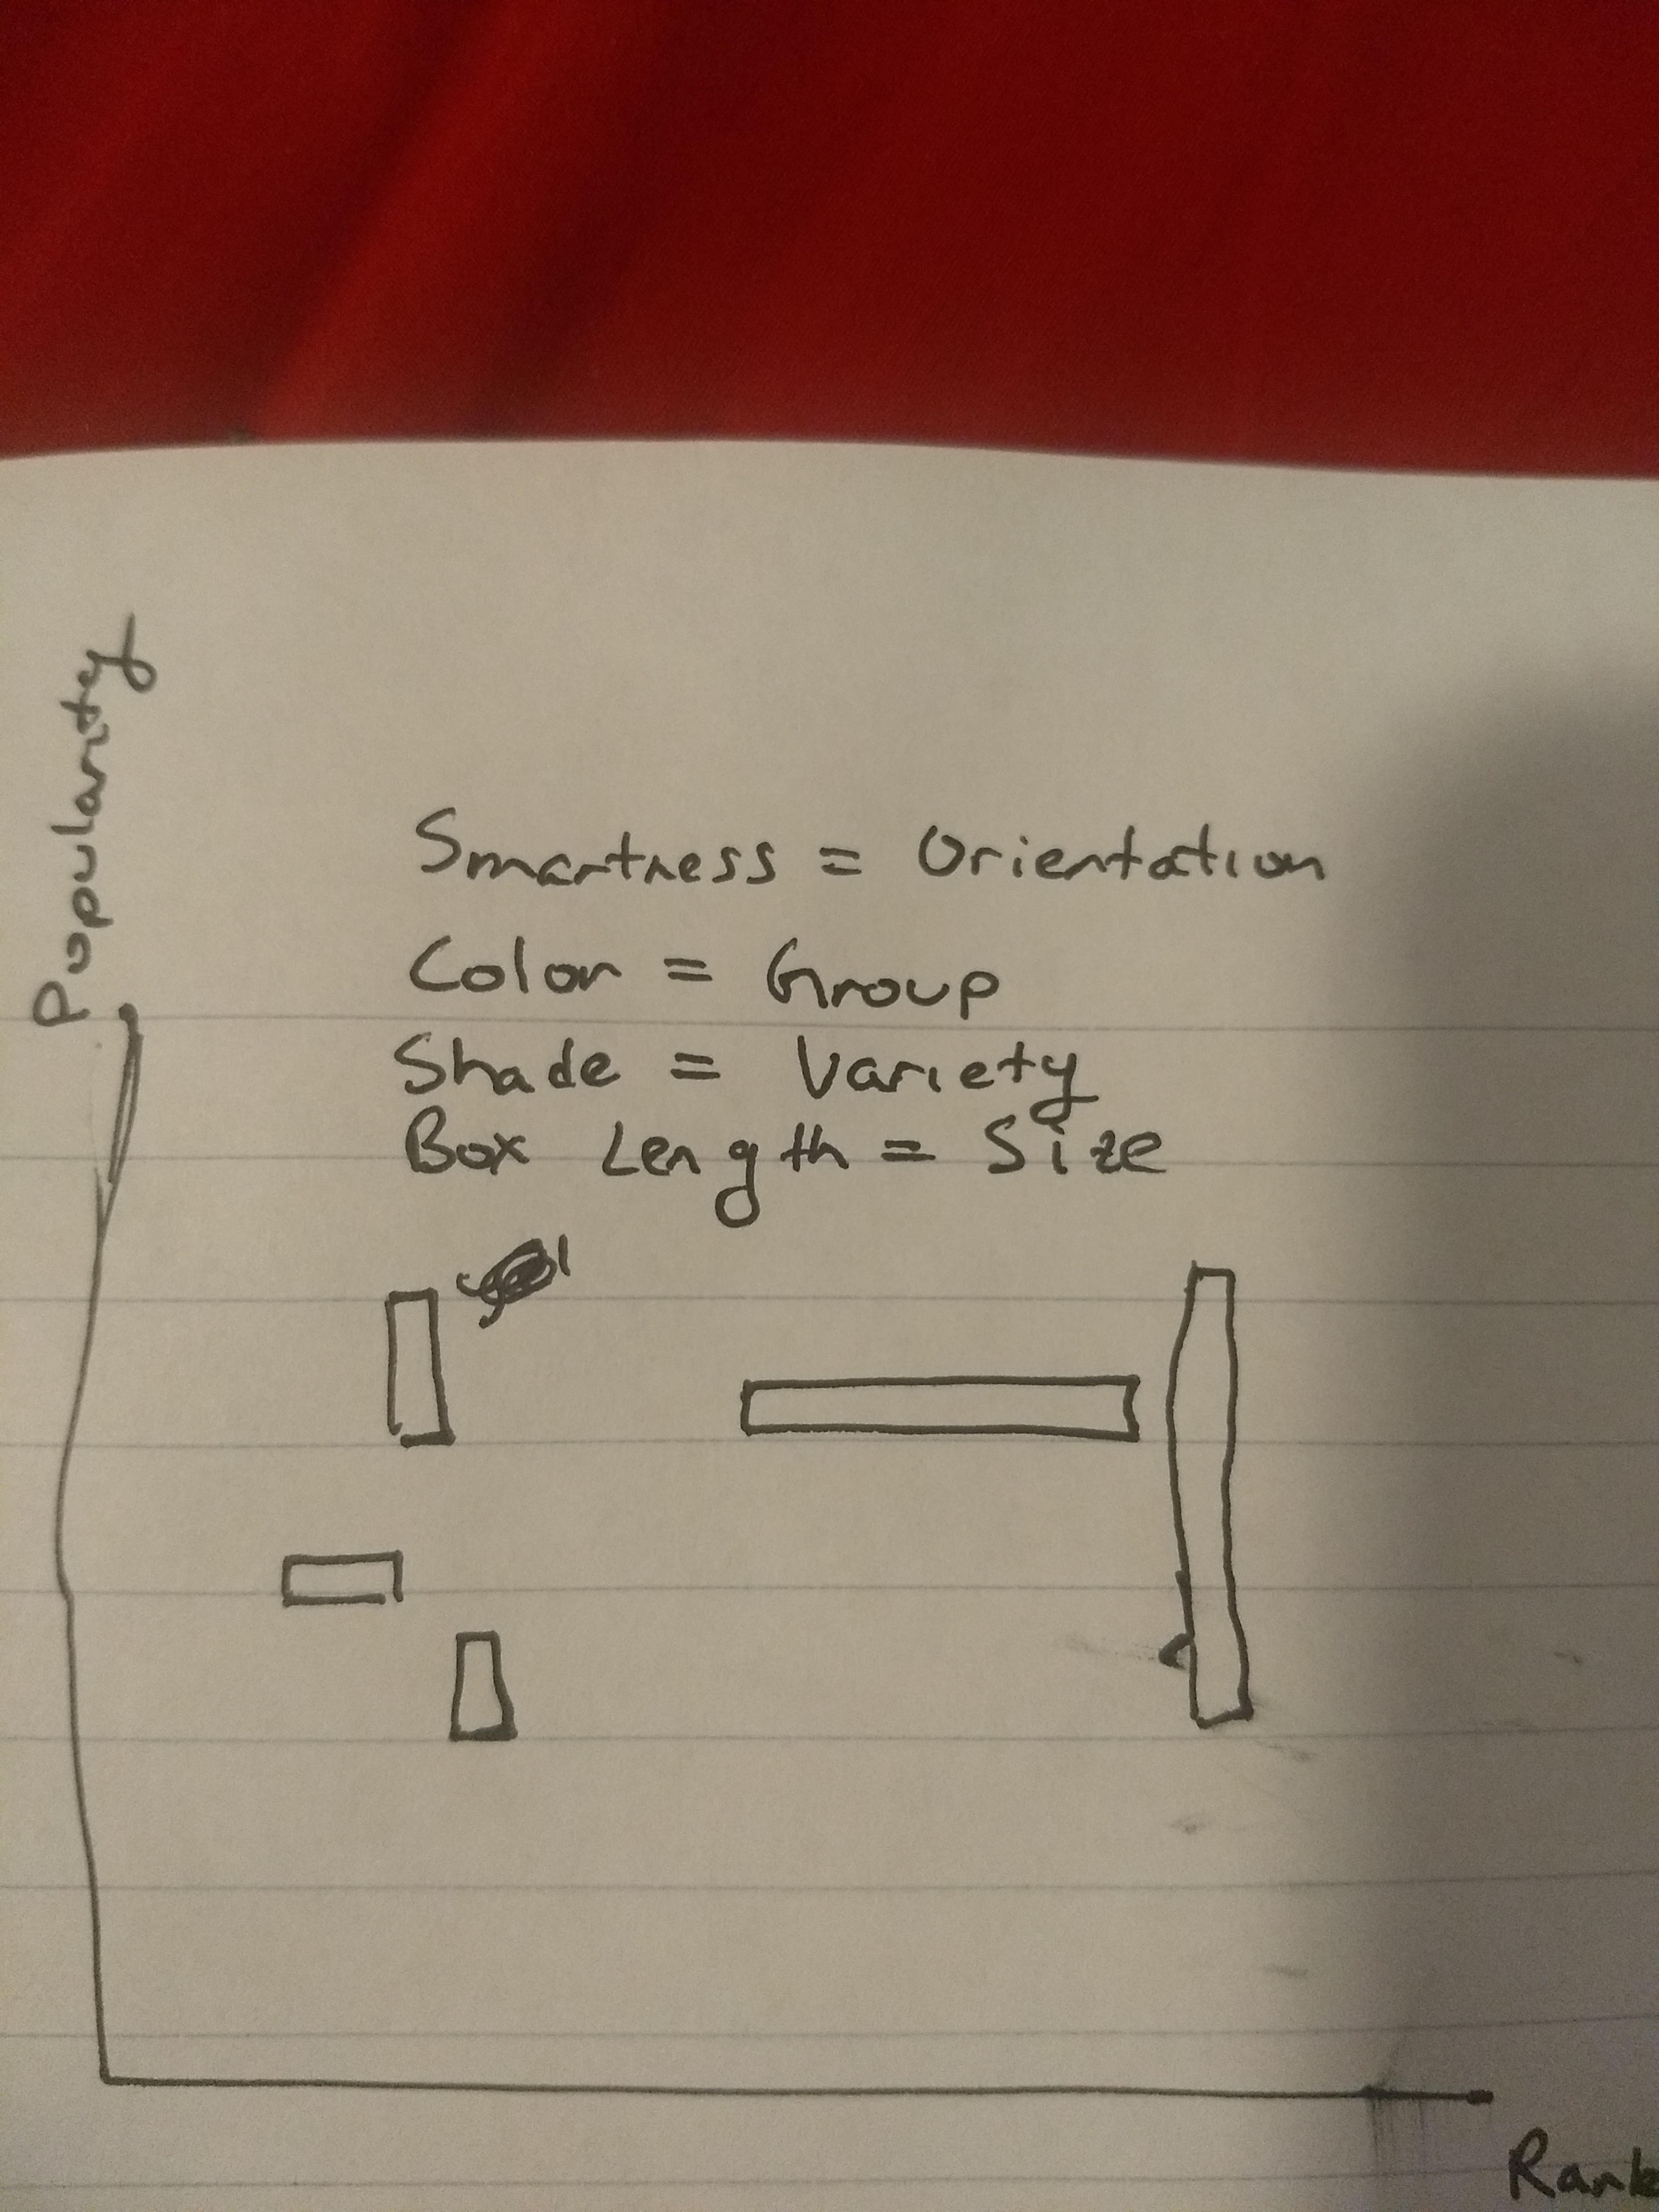 Popularity
Smartness = Orientation
Color = Group
Shade = Variety
Box Length = Size
Rank